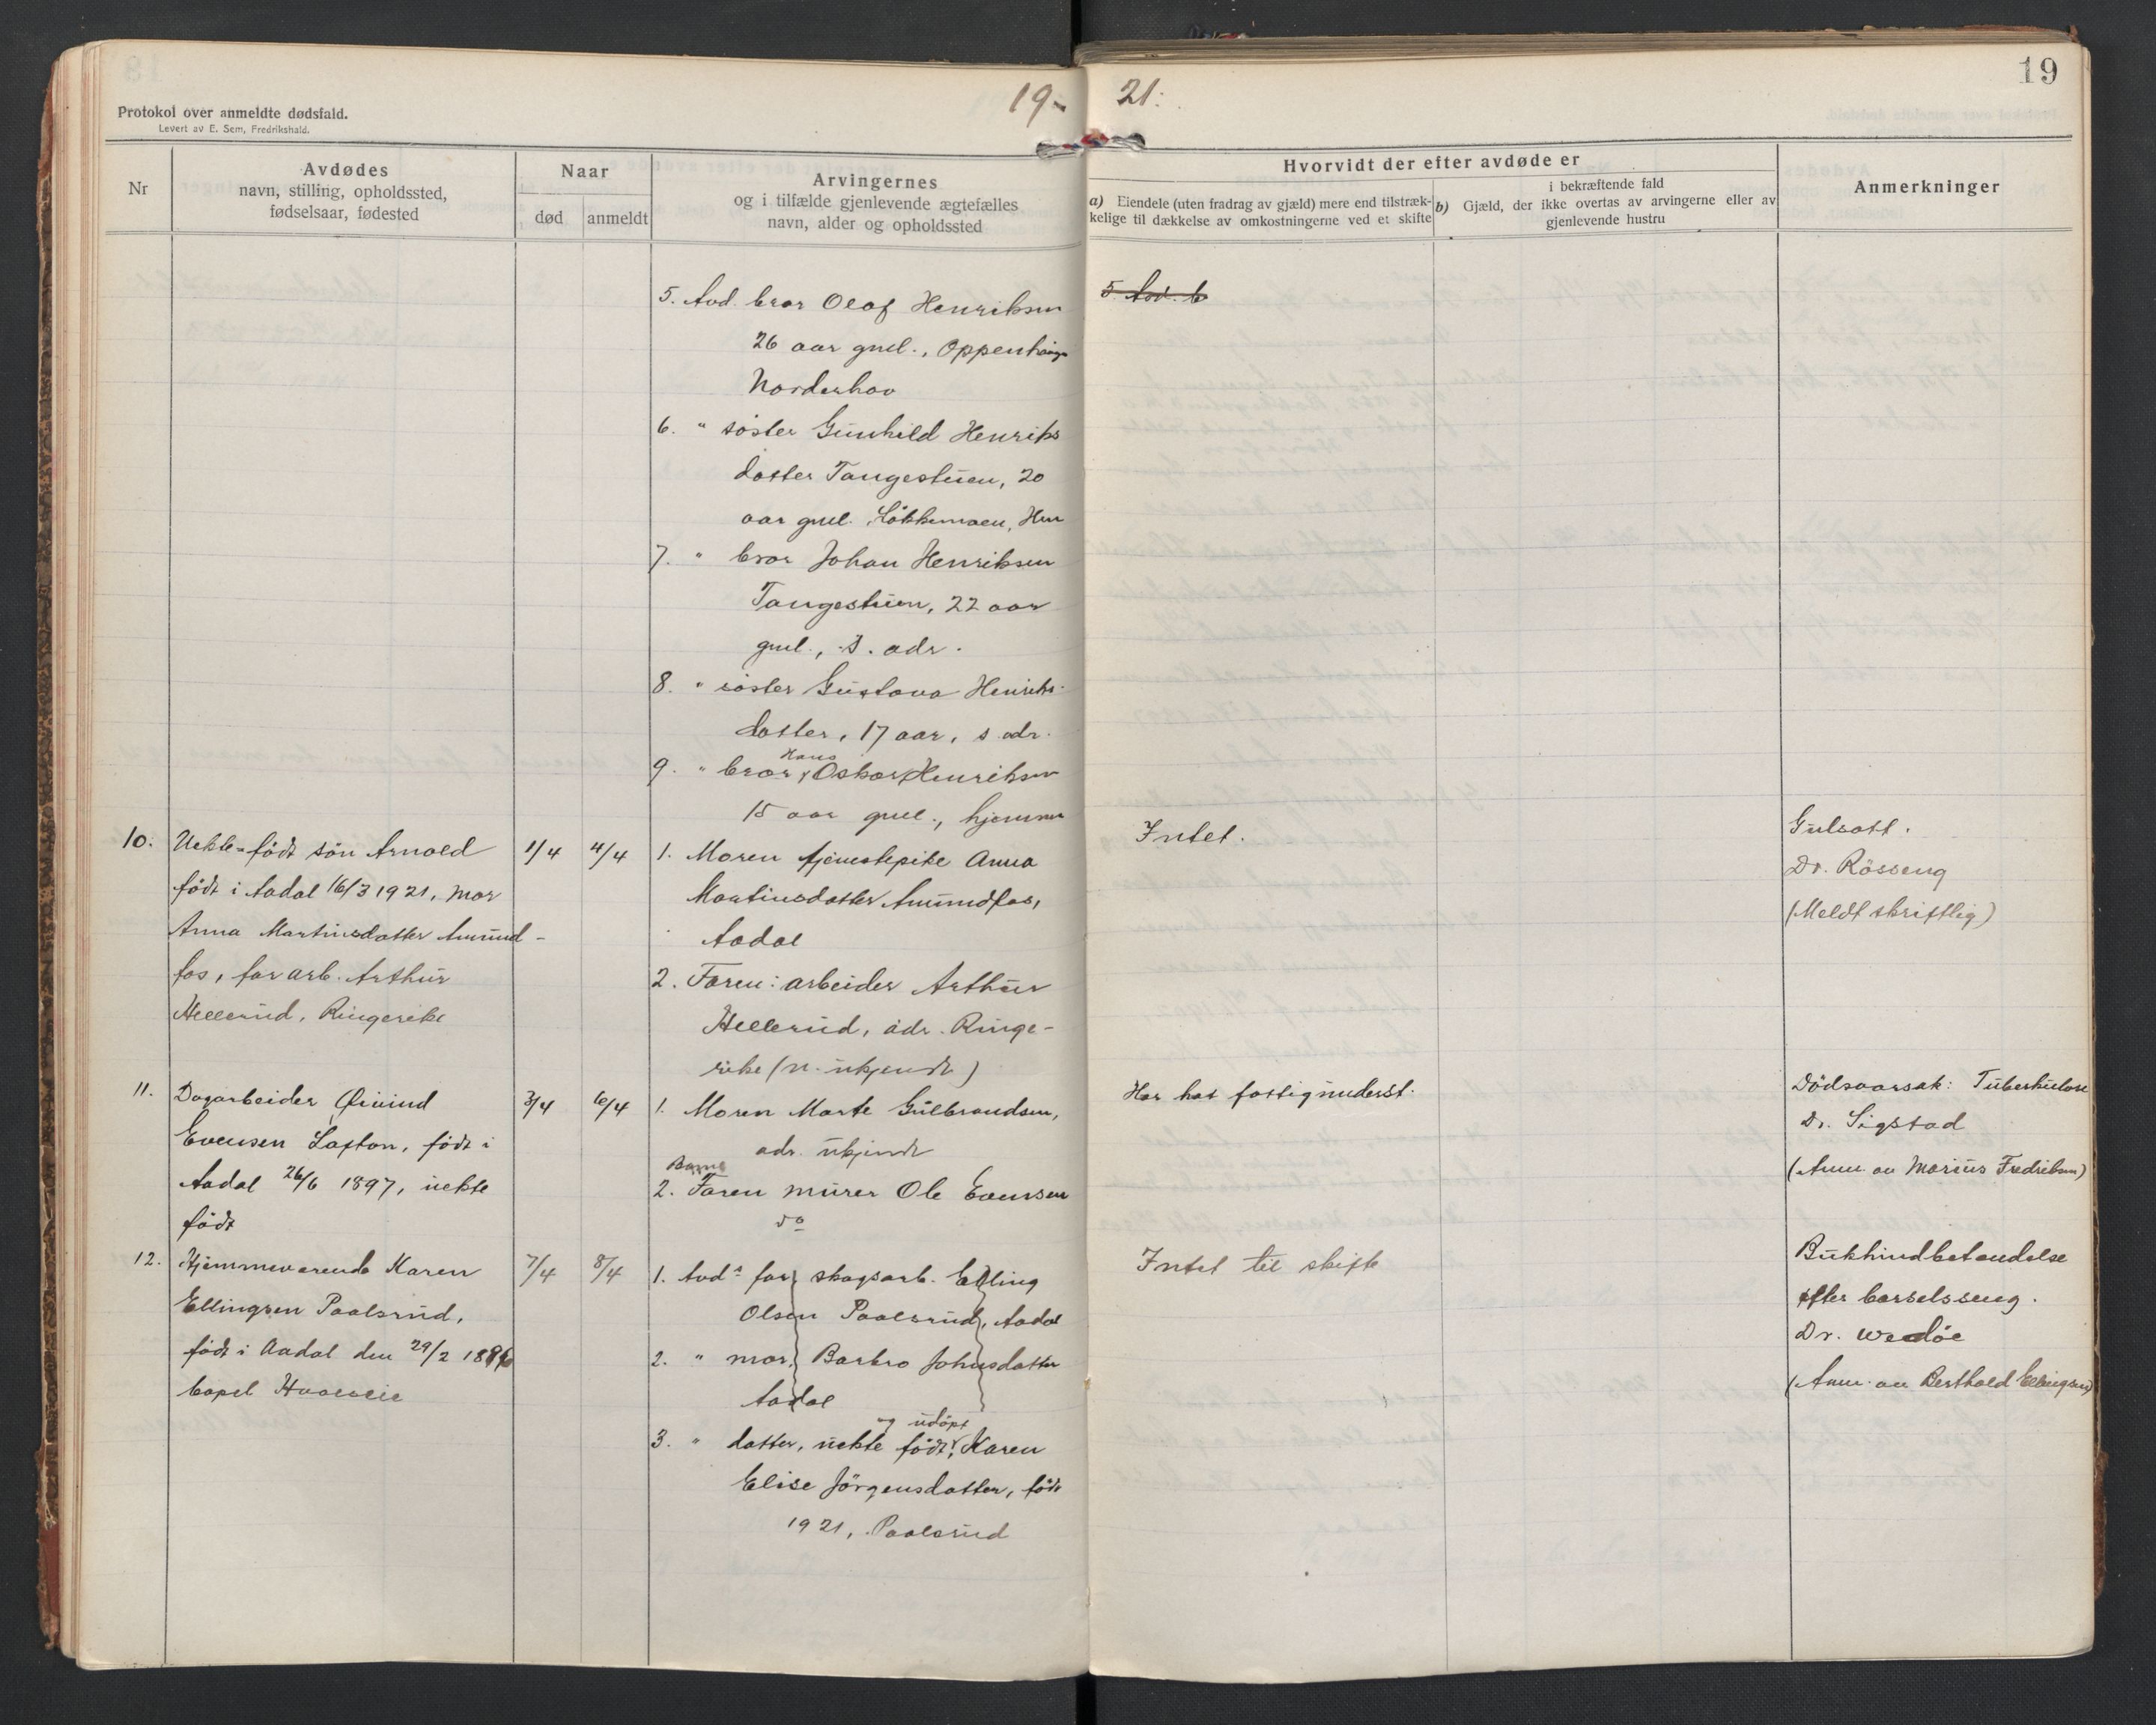 19
19- 21.
Protokol over anmeldte dødsfald.
Levert av E. Sem, Fredrikshald.
Nr
Avdødes
navn, stilling, opholdssted,
fødselsaar, fødested
Naar
død
anmeldt
Arvingernes
og i tilfælde gjenlevende ægtefælles
navn, alder og opholdssted
Hvorvidt der efter avdøde er
a) Eiendele (uten fradrag av gjæld) mere end tilstræk-
kelige til dækkelse av omkostningerne ved et skifte
i bekræftende fald
b) Gjæld, der ikke overtas av arvingerne eller av
gjenlevende hustru
Anmerkninger
5. Avd. bror Olaf Henriksen
26 aar gml., Oppenhaug
Norderhov
5 Avd. b
6. " søster Gunhild Henriks
datter Tangestuen, 20
aar gml.
7. " bror Johan Henriksen
Tangestuen, 22 aar
gml., s. adr.
8. " søster Gustava Henriks-
datter, 17 aar, s. adr.
9. " bror, Hans Oskar Henriksen
15 aar gml., hjemme
10. Uekte født søn Arnold
født i Aadal 16/3 1921, mor
Anna Martinsdatter Amund-
fos, far arb. Arthur
Hellerud, Ringerike
1/4 4/4
1. Moren tjenestepike Anna
Martinsdatter Amundfos,
Aadal
2. Faren: arbeider Arthur
Hellerud, adr. Ringe-
rike (n. ukjendt)
Intet.
Gulsott.
Dr. Røsseng
(Meldt skriftlig)
11. Dagarbeider Øivind
Evensen Lofton, født i
Aadal 26/6 1897, uekte
født
3/4 6/4
1. Moren Marte Gulbrandsen,
adr. ukjendt
2. Faren murer Ole Evensen
do
Har hat fattigunderst.
Dødsaarsak: Tuberkulose
Dr. Sigstad
(Anm. av Marius Fredriksen)
12. Hjemmeværende Karen
Ellingsen Paalsrud,
født i Aadal den 29/2 1896
7/4 8/4
1. Avds far, skogsarb. Elling
Olsen Paalsrud, Aadal
2. " mor, Barbro Johnsdatter
Aadal
3. " datter, uekte født og udøpt, Karen
Elise Jørgensdatter, født
1921, Paalsrud
Intet til skifte
Bukhindbetændelse
efter barselsseng.
Dr. Wedøe
(Anm. av Berthold Ellingsen)